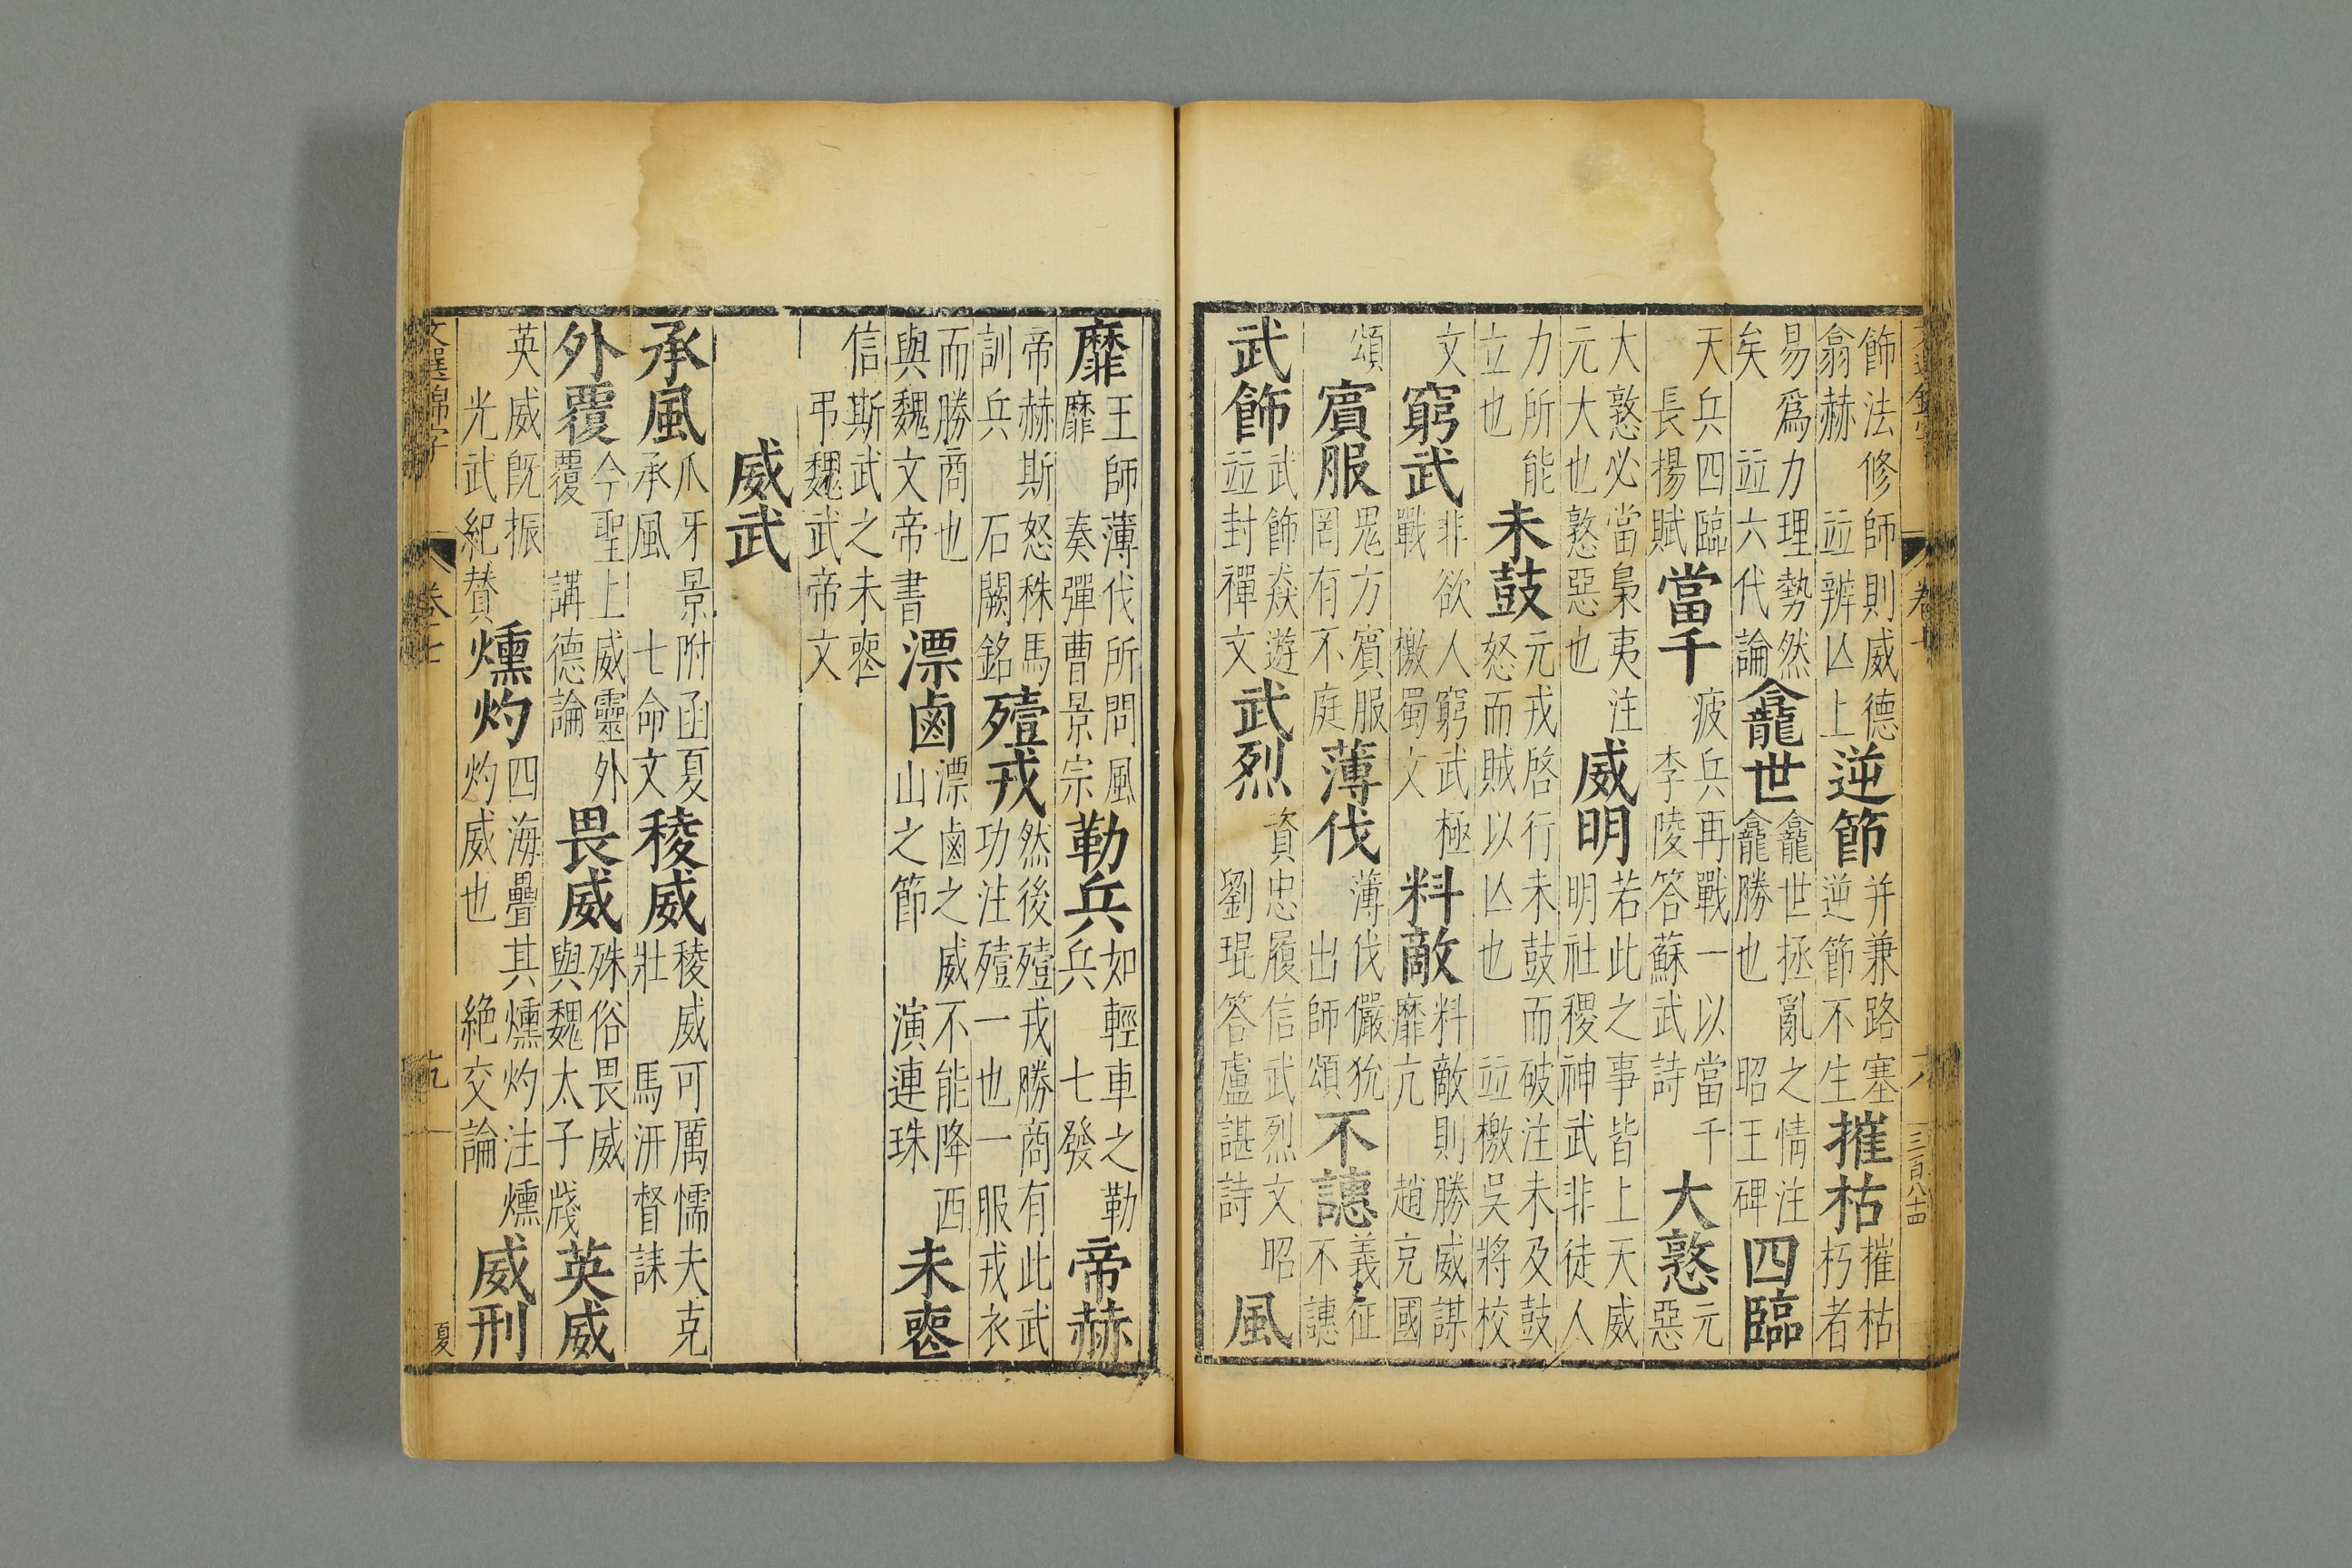 文選錦字 卷七 三百八十四
飾法修師則威德翕赫 並辨亾上逆節并兼路塞逆節不生摧枯摧枯朽者
易爲力理勢然矣 並六代論龕世龕世拯亂之情注龕勝也 昭王碑四臨
天兵四臨長揚賦當千疲兵再戰一以當千李陵答蘇武詩大憝元惡
大憝必當梟夷注元大也憝惡也威明若此之事皆上天威明社稷神武非徒人
力所能立也未鼓元戎啓行未鼓而破注未及鼓怒而賊以亾也 並檄吳將校
文窮武非欲人窮武極戰 檄蜀文料敵料敵則勝威謀靡亢 趙充國
頌賓服鬼方賓服罔有不庭薄伐薄伐儼狁出師頌不譓義征不譓
武飾武飾猋遊並封禪文武烈資忠履信武烈文昭劉琨答盧諶詩風
靡王師薄伐所問風靡 奏彈曹景宗勒兵如輕車之勒兵 七發帝赫
帝赫斯怒秣馬訓兵 石闕銘殪戎然後殪戎勝商有此武功注殪一也一服戎衣
而勝商也與魏文帝書漂鹵漂鹵之威不能降西山之節 演連珠未喪
信斯武之未喪弔魏武帝文
威武
承風爪牙景附函夏承風 七命文稜威稜威可厲懦夫克壯 馬汧督誄
外覆今聖上威靈外覆 講德論畏威殊俗畏威與魏太子牋英威
英威既振光武紀贊燻灼四海疊其燻灼注燻灼威也 絶交論威刑
文選錦字 卷七 九 夏